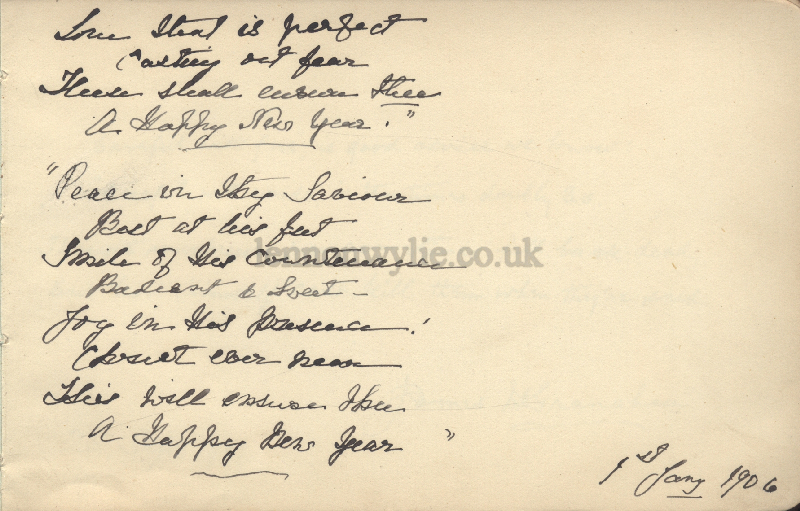 Love that is perfect
Casting out fear
These shall ensure thee
A Happy New Year."
"Peace in thy Saviour
Rest at his feet
Smile of His Countenance
Radiant & Sweet –
Joy in His presence!
Christ ever near
This will ensure thee
A Happy New Year "
1st Jany 1906
lennonwylie.co.uk